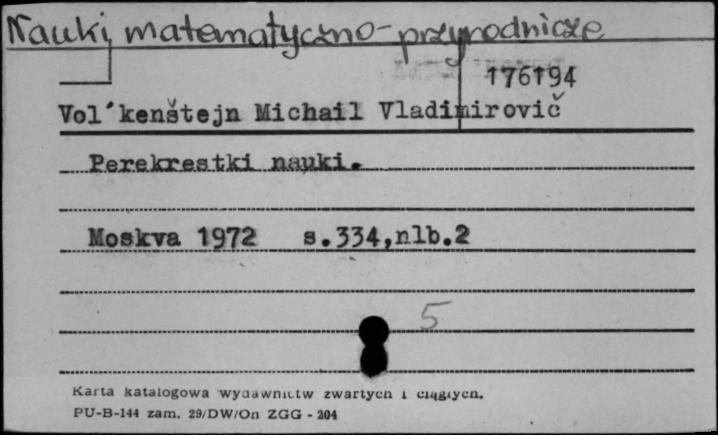 Nauki matematyczno-przyrodnicze
176194
Vol´kenštejn Michail Vladimirovič
Perekrestki nauki.
Moskva 1972 s.334,nlb.2
5
Karta katalogowa wydawnictw zwartych i ciągłych.
PU-B-144 zam. 29/DW/On ZGG - 204